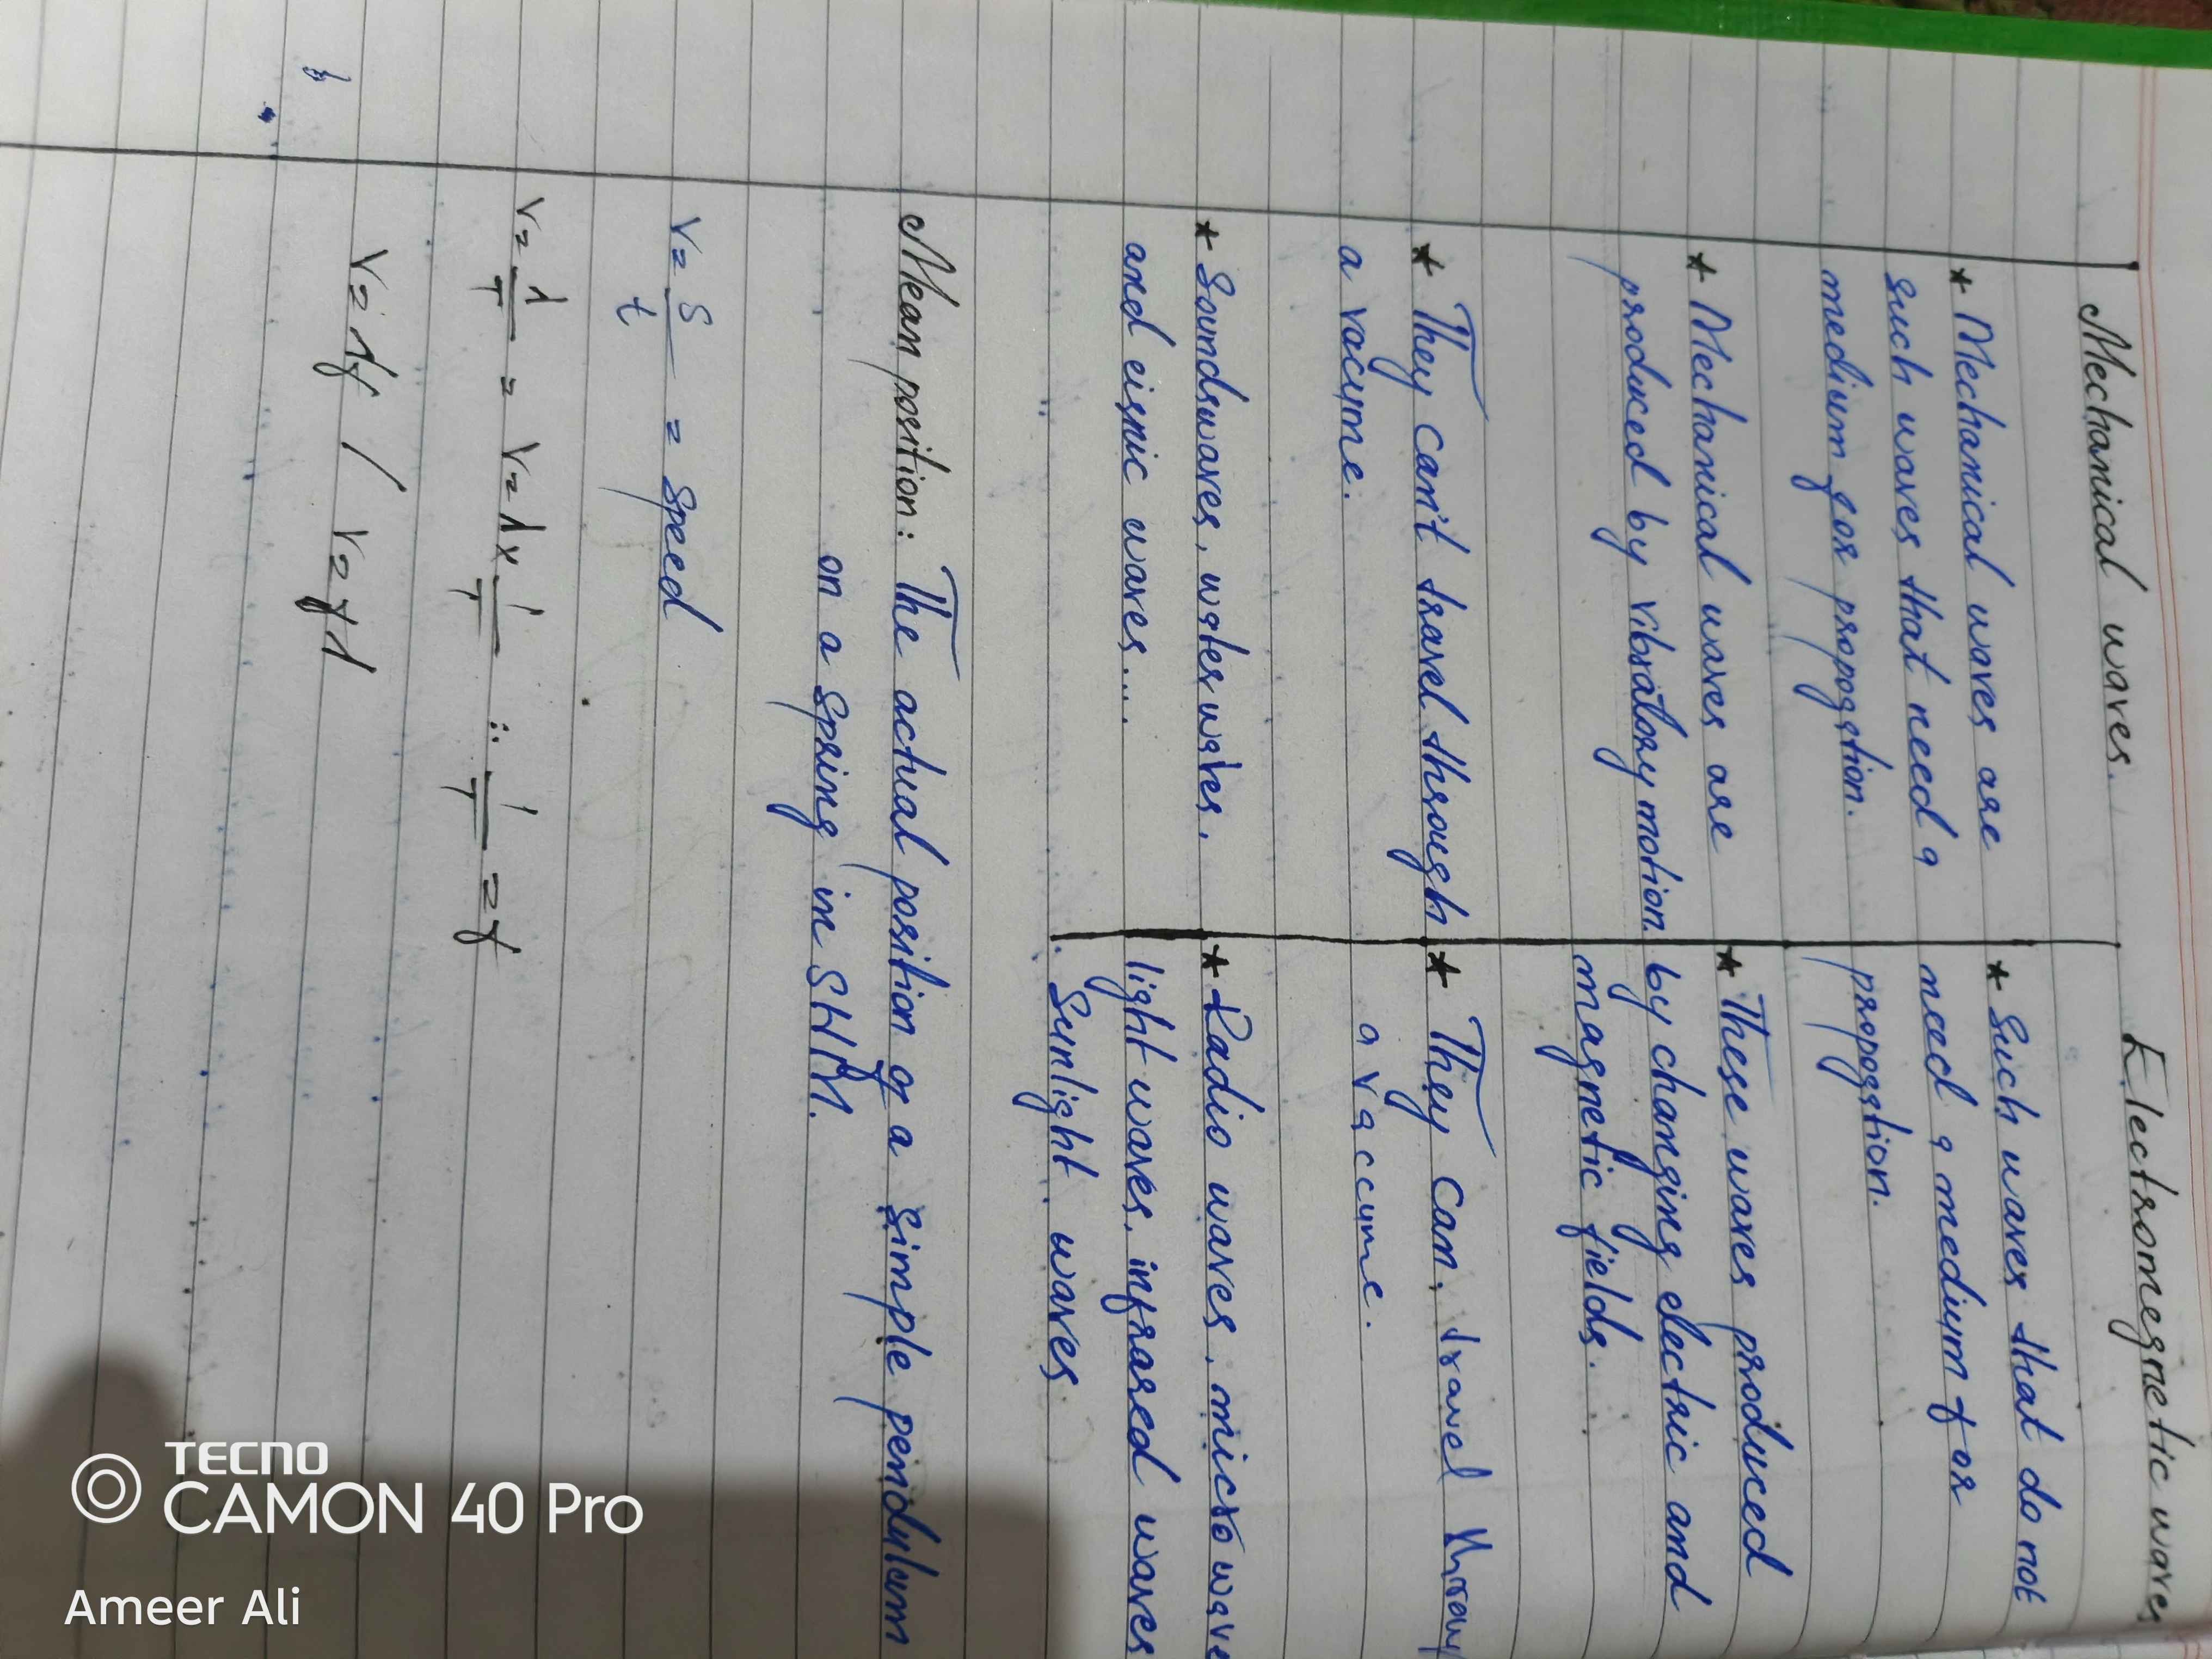 Mechanical waves.
Electromegnetic waves
* Mechanical waves are
such waves that need a
medium for propogation.
* Such waves that do not
need a medium for
propogation.
* Mechanical waves are
produced by vibratory motion.
* These waves produced
by changing electric and
magnetic fields.
* They can't travel through
a vacume.
* They can, travel throug
a vaccume.
* Soundswaves, water wates,
and eismic waves....
* Radio waves, micro wave
light waves, infrared waves
Sunlight waves.
Mean position: The actual position of a simple pendulum
on a spring in SHM.
v= s/t = speed
v= λ/T = v=λ× 1/T ∵ 1/T = f
v= λf / v= fλ
TECNO
CAMON 40 Pro
Ameer Ali